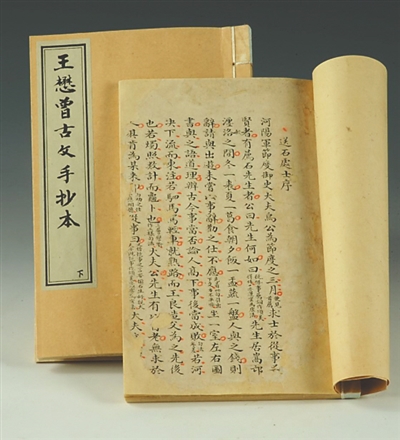 王懋曾古文手抄本
下
送石處士序
河陽軍節度御史大夫烏公為節度之三月求士於從事之
賢者有薦石先生者公曰先生何如曰先生居嵩邙
之間冬一裘夏一葛食朝夕飯一盂蔬一盤人與之錢則
辭請與出遊未嘗以事辭勸之仕不應坐一室左右圖
書與之語道理辨古今事當否論人高下事後當成敗若河
決下流而東注若駟馬駕輕車就熟路而王良造父為之先後
也若燭照數計而龜卜也大夫先生有以老無求於
人其肯為某來從事曰大夫